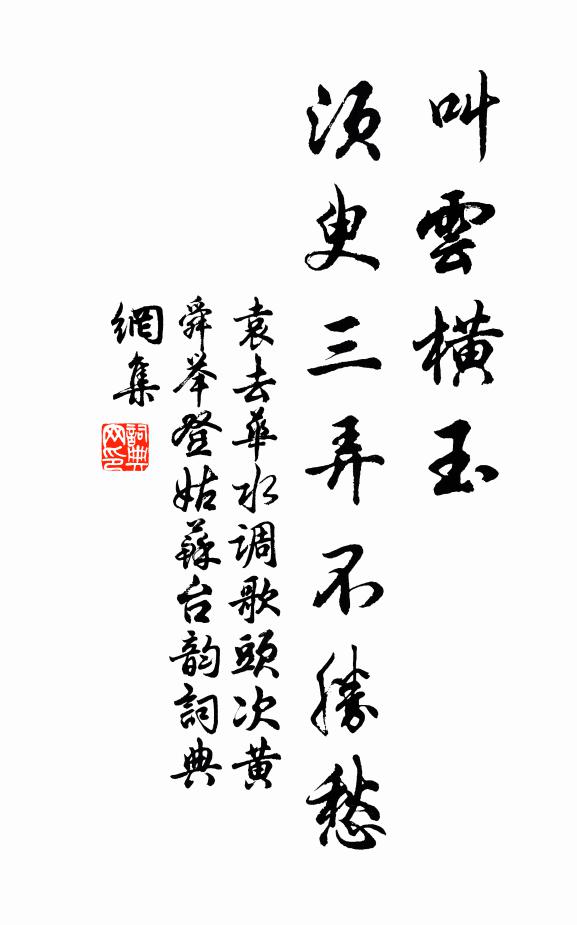 叫雲橫玉
須臾三弄不勝愁
袁去華水調歌頭次黄
舜举登姑蘇台韵詞典
網集
詞典
网印